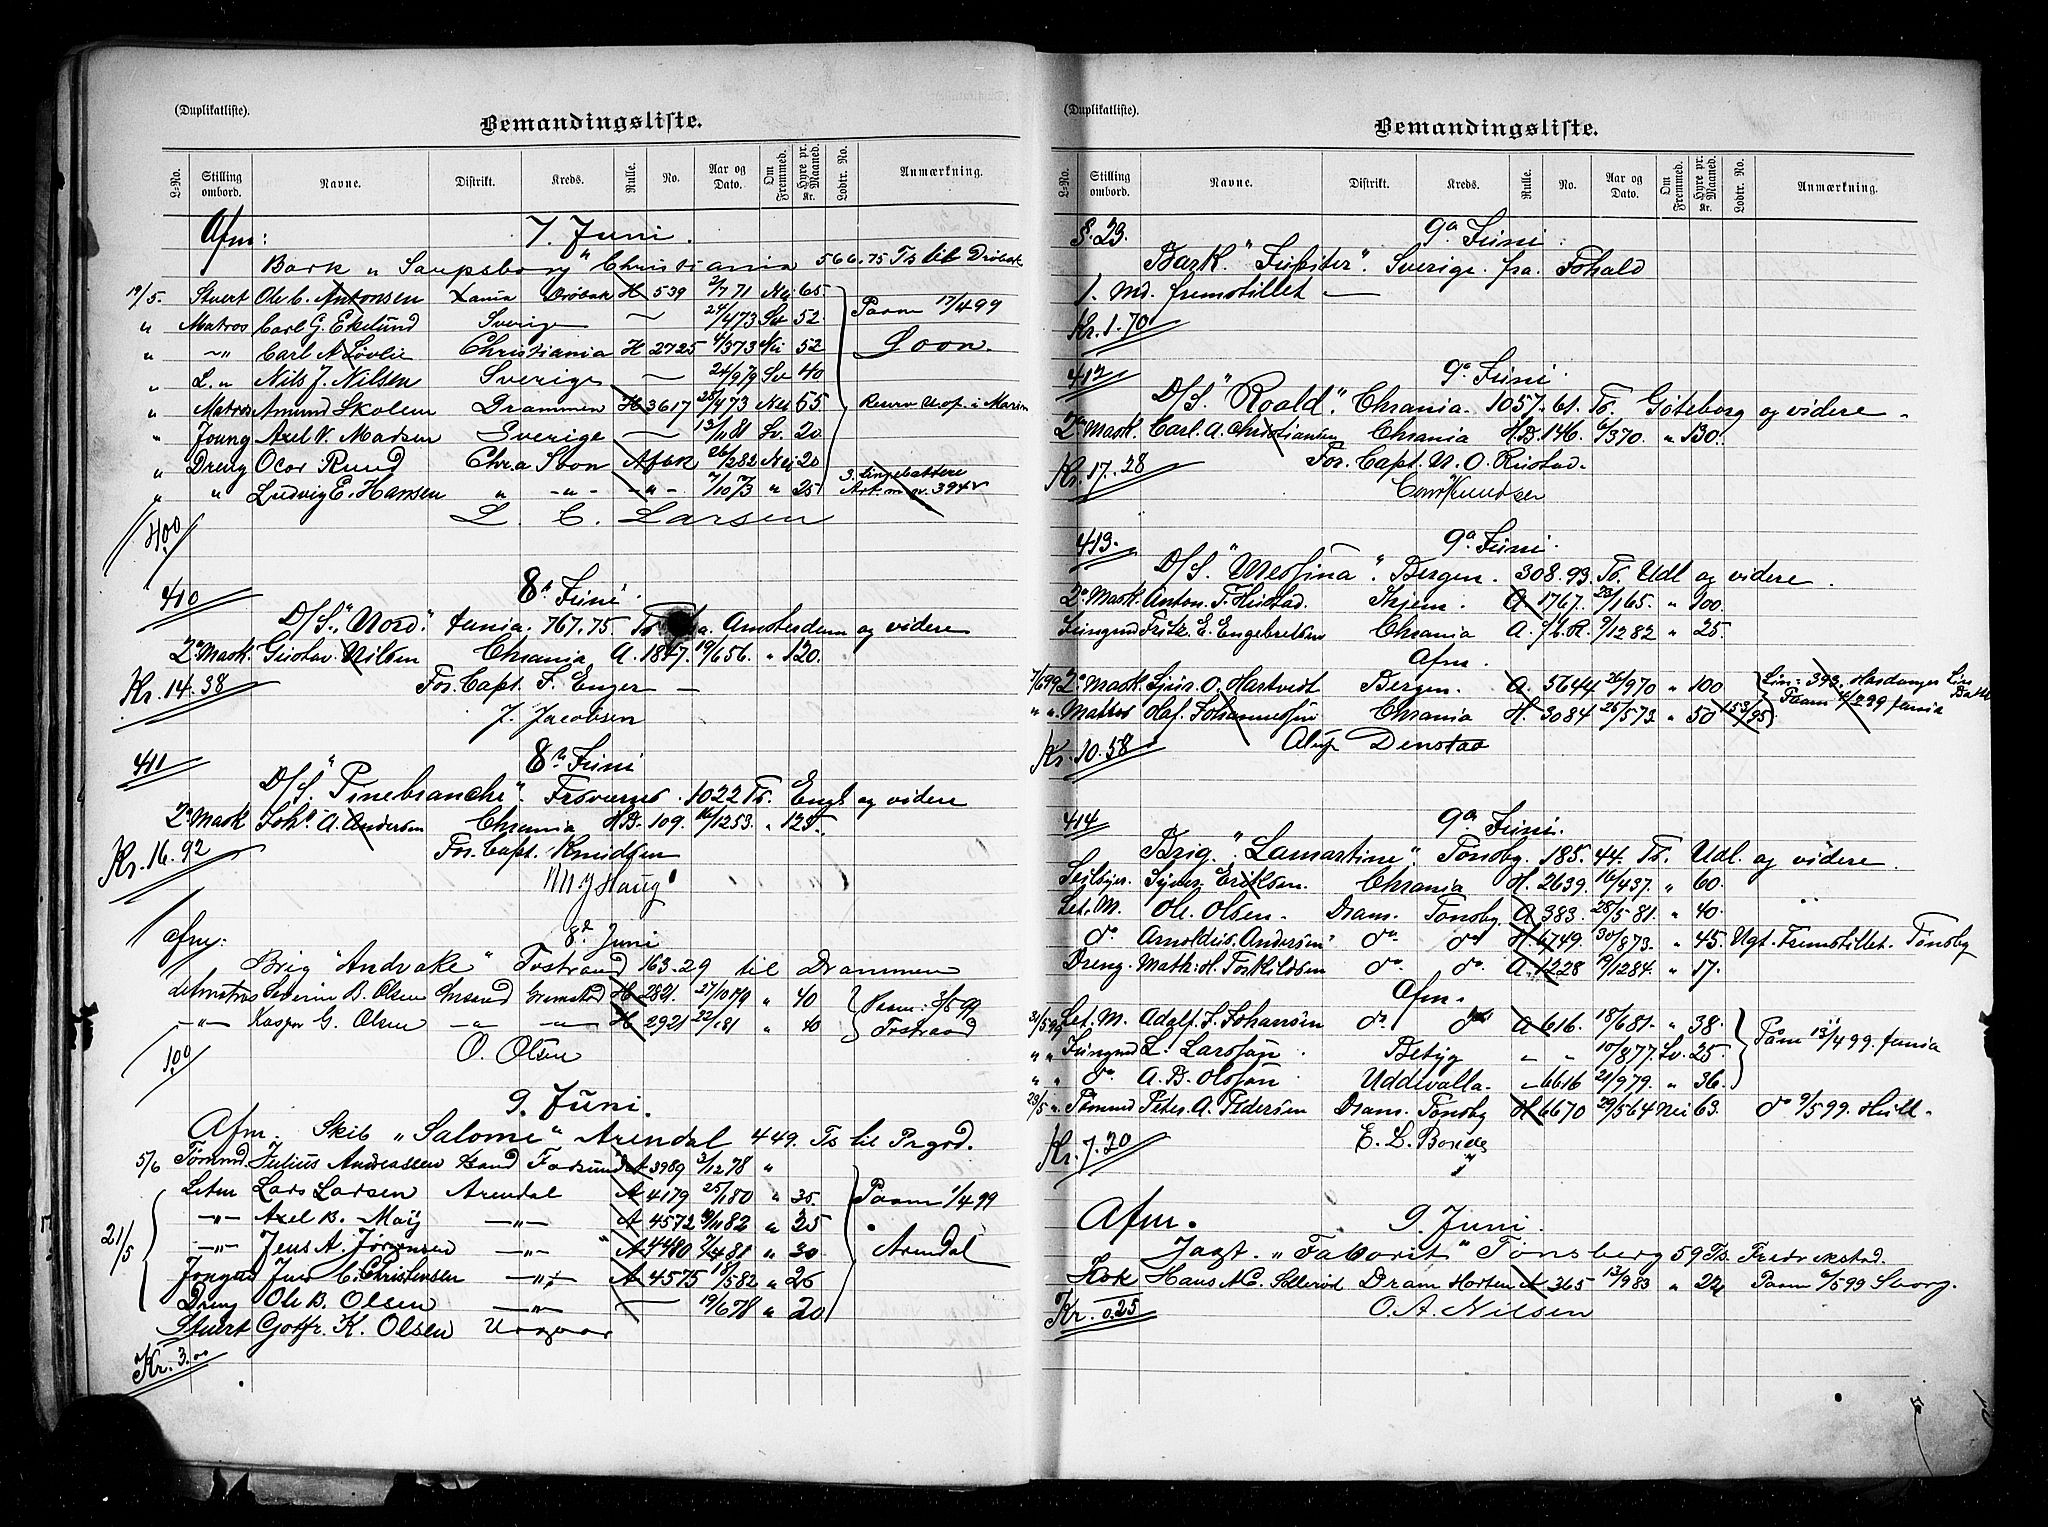 (Duplikatliste).
Bemandingsliste.
L-No. Stilling ombord. Navne. Distrikt. Kreds. Rulle. No. Aar og Dato. Om Fremmed. Hyre pr. Maaned. Kr. Lodtr. No. Anmærkning.
Afm: 7. Juni.
Bark „Sarpsborg" Christiania 566.75 Ts til Drøbak
19/5. Stuert Ole C. Antonsen Xania Drøbak H 539 2/7 71 Nei 65 Paam 17/4 99
„ Matros Carl G. Ekelund Sverige — 24/4 73 Sv 52
„ —„— Carl A. Løvlie Christiania H 2725 4/3 73 Nei 52 Soon.
„ L. „ Nils J. Nilsen Sverige — 24/9 79 Sv 40
„ Matros Amund Skolem Drammen H 3617 28/4 73 Nei 55
„ Joung Axel V. Madsen Sverige — 13/11 81 Sv. 20
„ Dreng Ocar Ruud Chra Soon 26/2 82 Nei 20
„ „ Ludvig E. Hansen „ —„— —„— 7/10 73 „ 25
L. C. Larsen
400
410 8de Juni.
D/S. „Nord." Xania. 767.75 Ts. Amsterdam og videre
2n Mask. Gustav. Nilsen Chrania A. 1847. 19/6 56. „ 120.
Kr. 14.38 For. Capt. F. Enger —
J. Jacobsen
411 8de Juni
D/S. "Pinebranche". Frsværnes. 1022 Ts. Engl og videre
2n Mask Johs. A. Andersen Chrania H.B. 109. 16/12 53. „ 125.
Kr. 16.92 For. Capt. Knudsen
M J Haug
afm: 8d Juni
Brig "Andvake" Tvestrand 163.29 til Drammen
Severin B. Olsen Grimstad H 2821. 27/10 79 „ 40 Paam. 3/5 99
—„— Kasper G. Olsen —„— —„— H 2921 22/1 81 „ 40 Tvestrand
100 O. Olsen
9. Juni.
Afm. Skib „Salome" Arendal 449. Ts til Prgrd.
5/6 Tømmd. Julius Andreassen A 3989 3/12 78 „
Letm Lars Larsen Arendal A 4179 25/1 80 „ 35 Paam 1/4 99
—„— Axel B. May —„— A 4572 19/11 82 „ 25
21/5 —„— Jens A. Jørgensen —„— A 4480 7/4 81 „ 30 Arendal
Jongmd Jens C. Christensen —„— A 4575 18/5 82 „ 26
Dreng Ole B. Olsen —„— — 19/6 78 „ 20
Stuert Gotfr. K. Olsen
Kr. 3.00
(Duplikatliste).
Bemandingsliste.
L-No. Stilling ombord. Navne. Distrikt. Kreds. Rulle. No. Aar og Dato. Om Fremmed. Hyre pr. Maaned. Kr. Lodtr. No. Anmærkning.
§. 23. 9de Juni.
Bark. "Jupiter". Sverige. fra.
1. Md. fremstillet —
Kr. 1.70
412 9de Juni.
D/S. "Roald". Chrania. 1057.61. Ts. Göteborg og videre.
2n Mask. Carl. A. Christiansen Chrania H.B. 146. 6/3 70. „ 130.
Kr. 17.28 For. Capt. N. O. Rustad.
413. 9de Juni.
D/S. "Messina". Bergen. 308.93. Ts. Udl og videre.
2n Mask. Anton. T. Hustad. Skjem. A. 1767. 23/1 65. „ 100.
Jungmd Fritz E. Engebretsen Chrania A. 9/12 82 „ 25.
Afm.
7/6 99 2n Mask. Sjur. O. Hartvedt Bergen. A. 5644 26/9 70 „ 100
„ „ Matros Haf. Johannessen Chrania H. 3084 25/5 73 „ 50 153/95
Kr. 10.58 Denstad
414 9de Juni.
Brig. "Lamartine". Tønsbg. 185.44. Ts. Udl. og videre.
Seilskjer. Syver Eriksen. Chrania H. 2639. 16/4 37. „ 60.
Let. M. Ole. Olsen. Dram. Tønsbg A 383. 28/5 81. „ 40.
do. Arnoldus. Andersen do. do H. 6749. 30/8 73. „ 45. Ugt. Fremstillet. Tønsbg
Dreng. Math. H. Torkildsen do. do. A. 1228 19/12 84. „ 17.
Afm.
31/5 99 Let. M. Adolf. F. Johansen do. do A 616. 18/6 81. „ 38. Paam 13/4 99. Xania
„ „ Jungmd L. Larsson. „ „ 10/8 77. Sv. 25.
„ „ do. A. B. Olsson. Uddevalla. „ 6616 21/9 79. „ 36.
23/5 „ Tømmd Peter. A. Pedersen Dram. Tønsbg H 6670 29/5 64 Nei 63. do 9/5 99. Hull.
Kr. 7.20
Afm. 9. Juni.
Jagt. „Favorit" Tønsberg 59 Ts. Fredrikstad.
Kok Hans A. E. Sollerød Dram Horten A 365 13/9 83 „ 24 Paam 6/5 99 Svorg.
Kr. 0.25 O. A. Nilsen